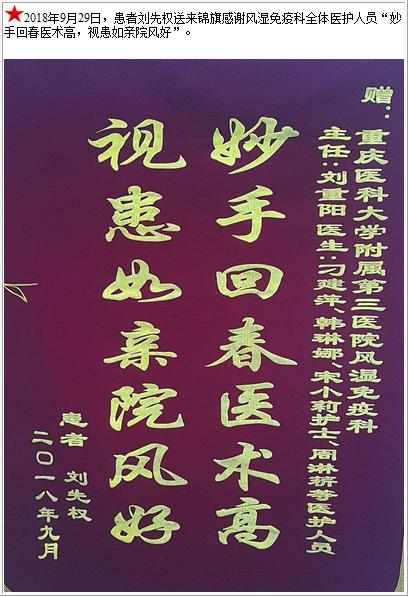 ★2018年9月29日，患者刘先权送来锦旗感谢风湿免疫科全体医护人员“妙
手回春医术高，视患如亲院风好”。
赠：
重庆医科大学附属第三医院风湿免疫科
主任：刘重阳医生：刁建萍、韩琳娜、宋小莉护士、周淋等医护人员
妙手回春医术高
视患如亲院风好
患者 刘先权
二〇一八年九月